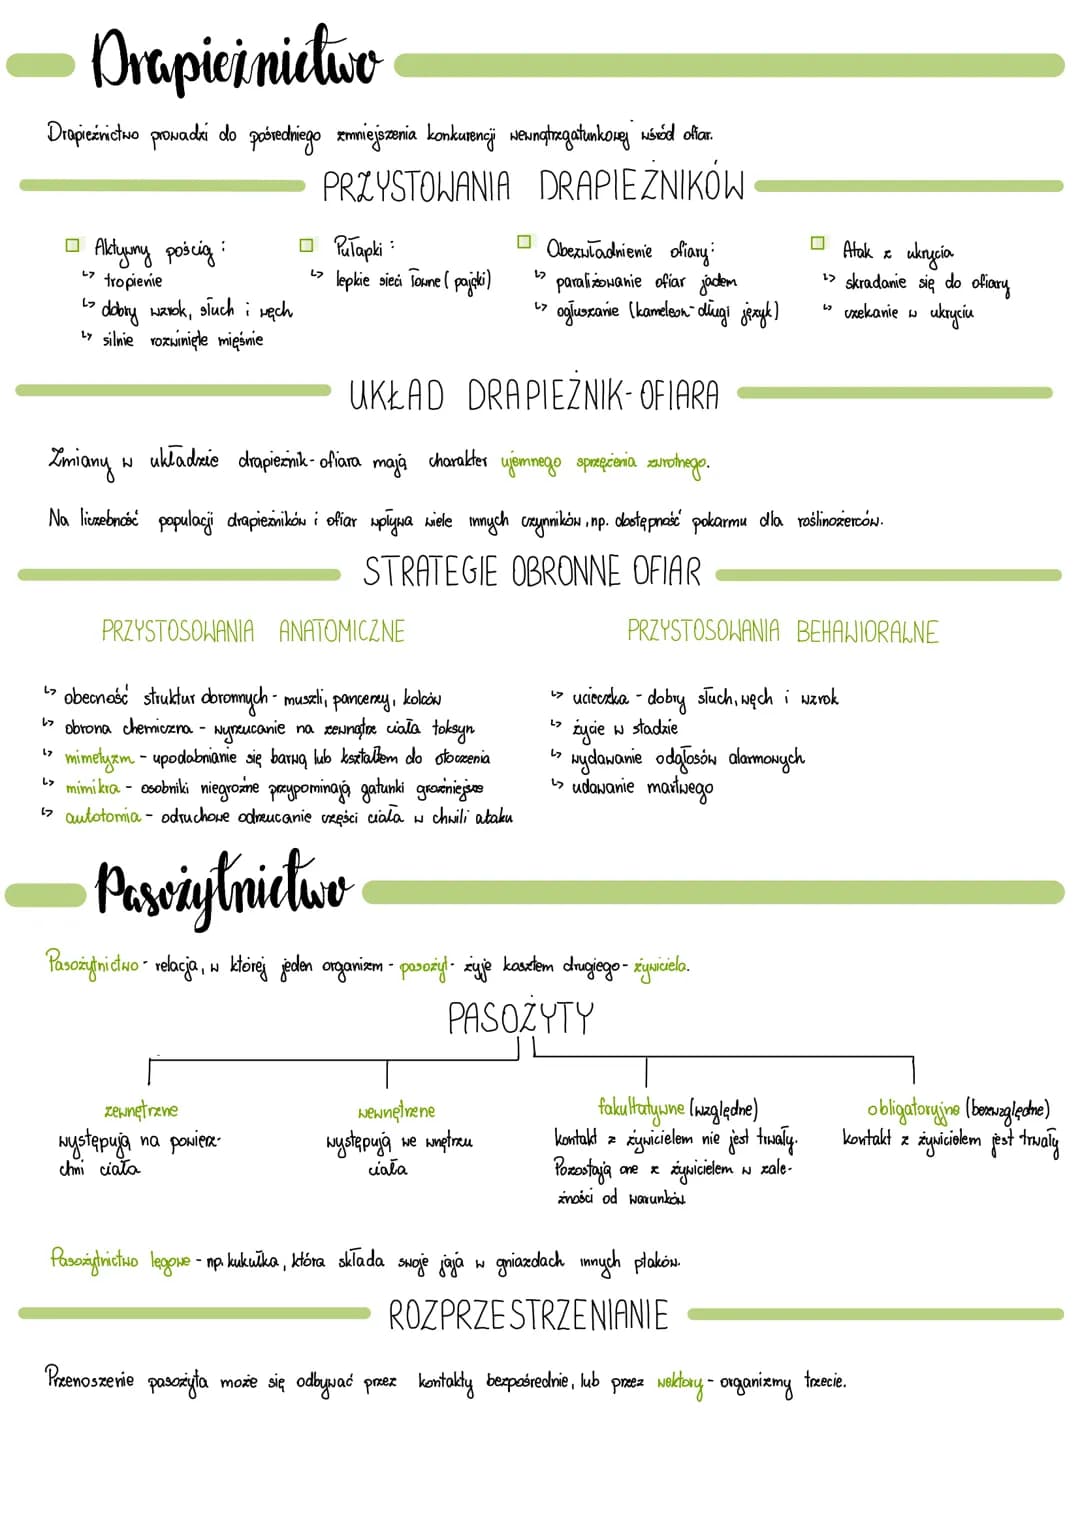 Drapieżnictwo
Drapieżnictwo prowadzi do pośredniego zmniejszenia konkurencji wewnątrzgatunkowej wśród ofiar.
PRZYSTOWANIA DRAPIEŻNIKÓW
Aktywny pościg:
↳ tropienie
↳ dobry wzrok, słuch i węch
↳ silnie rozwinięte mięśnie
Pułapki:
↳ lepkie sieci łowne (pająki)
Obezwładnienie ofiary:
↳ paraliżowanie ofiar jadem
↳ ogłuszanie (kameleon-długi język)
Atak z ukrycia
↳ skradanie się do ofiary
↳ czekanie w ukryciu
UKŁAD DRAPIEŻNIK-OFIARA
Zmiany w układzie drapieżnik-ofiara mają charakter ujemnego sprzężenia zwrotnego.
Na liczebność populacji drapieżników i ofiar wpływa wiele innych czynników, np. dostępność pokarmu dla roślinożerców.
STRATEGIE OBRONNE OFIAR
PRZYSTOSOWANIA ANATOMICZNE
↳ obecność struktur obronnych - muszli, pancerzy, kolców
↳ obrona chemiczna - wyrzucanie na zewnątrz ciała toksyn
↳ mimetyzm - upodabnianie się barwą lub kształtem do otoczenia
↳ mimikra - osobniki niegroźne przypominają gatunki groźniejsze
↳ autotomia - odruchowe odrzucanie części ciała w chwili ataku
PRZYSTOSOWANIA BEHAWIORALNE
↳ ucieczka - dobry słuch, węch i wzrok
↳ życie w stadzie
↳ wydawanie odgłosów alarmowych
↳ udawanie martwego
Pasożytnictwo
Pasożytnictwo - relacja, w której jeden organizm - pasożyt - żyje kosztem drugiego - żywiciela.
PASOŻYTY
zewnętrzne
występują na powierz-
chni ciała
wewnętrzne
występują we wnętrzu
ciała
fakultatywne (względne)
kontakt z żywicielem nie jest trwały.
Pozostają one z żywicielem w zale-
żności od warunków
obligatoryjne (bezwzględne)
kontakt z żywicielem jest trwały
Pasożytnictwo lęgowe - np. kukułka, która składa swoje jaja w gniazdach innych ptaków.
ROZPRZESTRZENIANIE
Przenoszenie pasożyta może się odbywać przez kontakty bezpośrednie, lub przez wektory - organizmy trzecie.